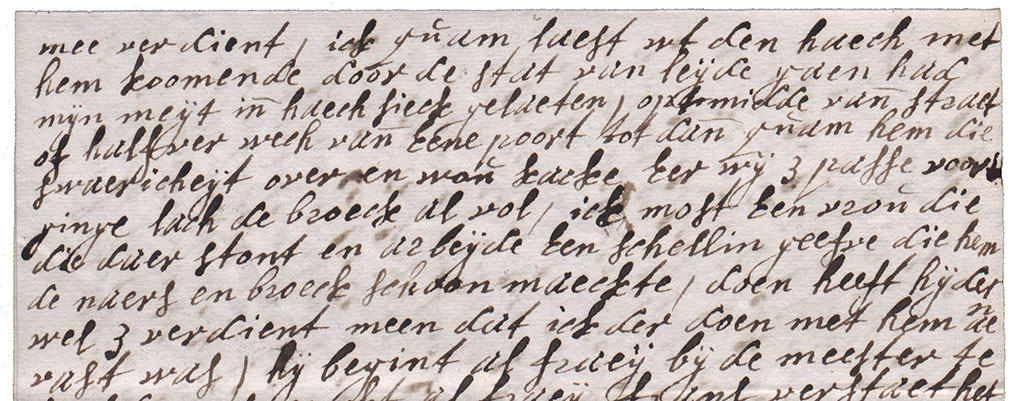 mee verdient / ick quam laest wt den haech met
hem koomende door de stat van leijde gaen had
mijn meijt in haech sieck gelaeten / opt midde van straet
of halfver wech van eene poort tot dan quam hem die
swaericheijt over en wou kacke eer wij 3 passe voorts
ginge lach de broeck al vol / ick most een vrou die
die daer stont en arbeijde een schellin geefve die hem
de naers en broeck schoon maeckte / doen heeft hij der
wel 3 verdient meen dat ick der doen met hem an de
vast was / hij begint al fraeij bij de meester te
al fraeij verstaet het